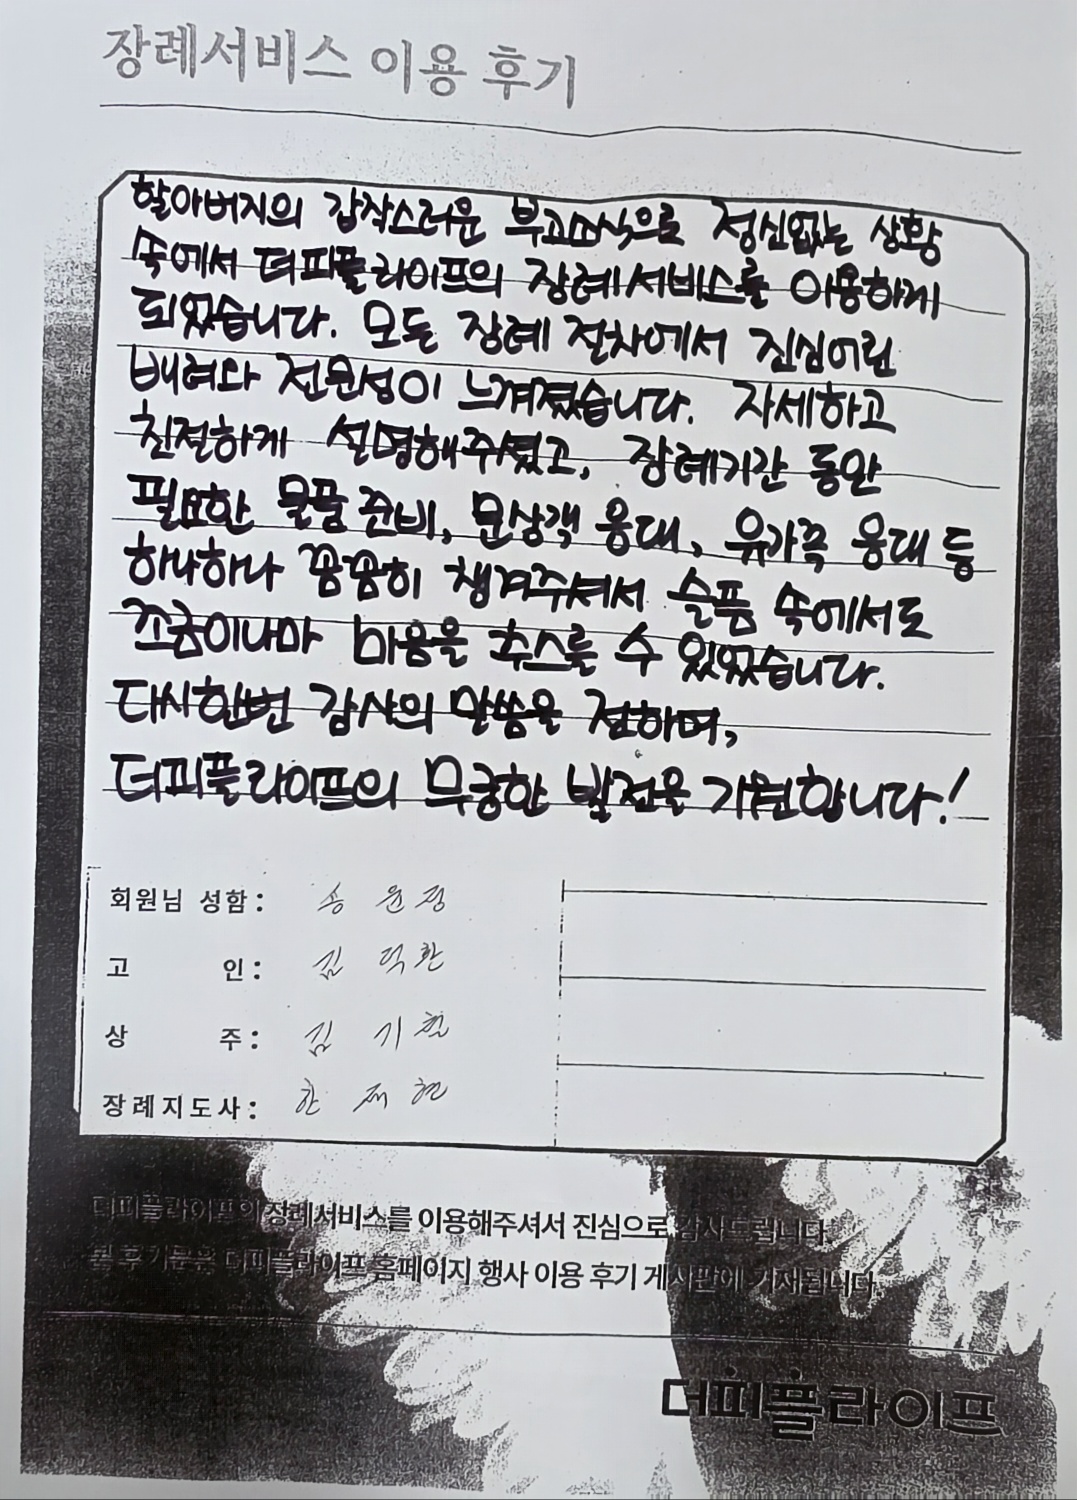 장례서비스 이용 후기
할아버지의 갑작스러운 부고소식으로 정신없는 상황
속에서 더피플라이프의 장례서비스를 이용하게
되었습니다. 모든 장례 절차에서 진심어린
배려와 전문성이 느껴졌습니다. 자세하고
친절하게 설명해주셨고, 장례기간 동안
필요한 물품 준비, 문상객 응대, 유가족 응대 등
하나하나 꼼꼼히 챙겨주셔서 슬픔 속에서도
조금이나마 마음을 추스를 수 있었습니다.
다시한번 감사의 말씀을 전하며,
더피플라이프의 무궁한 발전을 기원합니다!
회원님 성함: 송윤정
고 인: 김덕환
상 주: 김기철
장례지도사: 한재현
더피플라이프의 장례서비스를 이용해주셔서 진심으로 감사드립니다.
본 후기문은 더피플라이프 홈페이지 행사 이용 후기 게시판에 기재됩니다.
더피플라이프